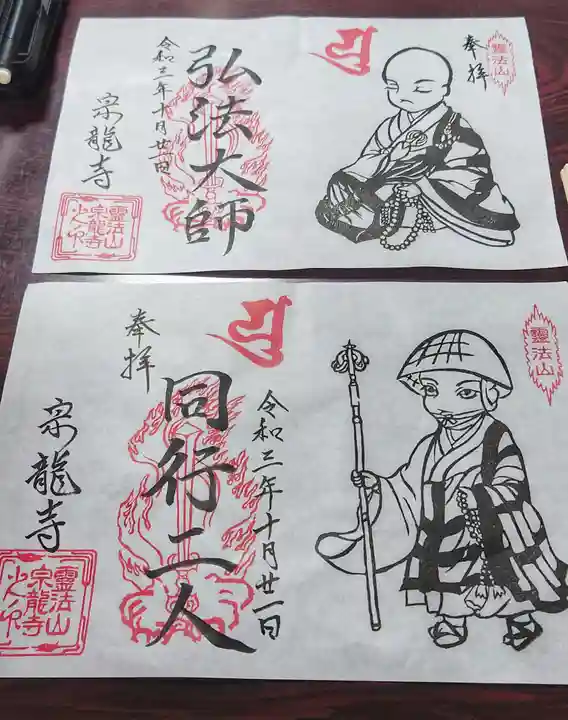 靈法山
奉拝
弘法大師
令和三年十月廿一日
宗龍寺
靈法山
宗龍寺
靈法山
令和三年十月廿一日
同行二人
奉拝
宗龍寺
靈法山
宗龍寺